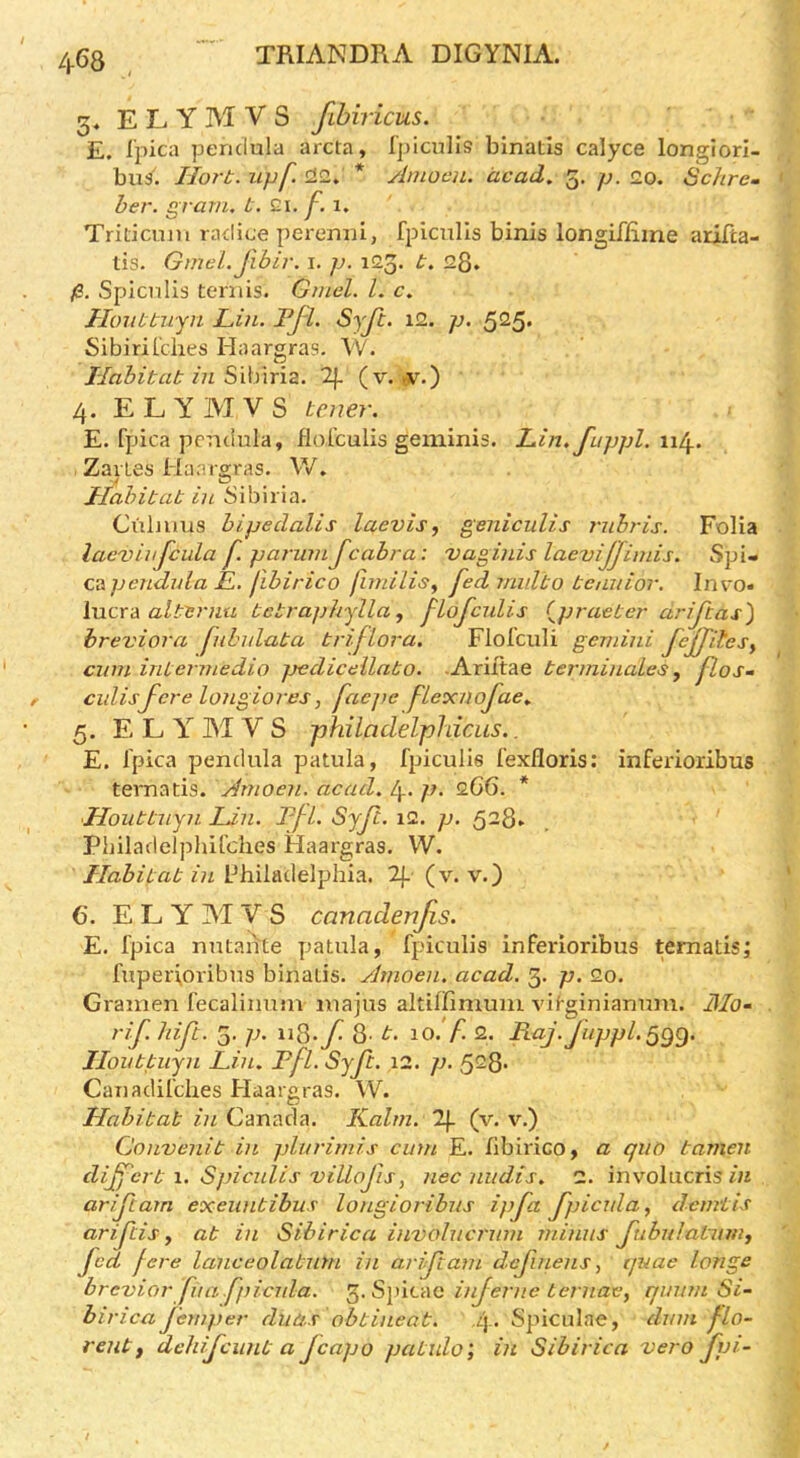 468 TRIANDRA DIGYNIA.
3. ELYMVS ſibiricus.
E. ſpica pendula arcta, ſpiculis binatis calyce longiori-
bus. Hort. upſ. 22. * Amoen. acad. 3. p. 20. Schre-
ber. gram. t. 21. f. 1.
Triticum radice perenni, ſpiculis binis longiſſime ariſta-
tis. Gmel. ſibir. 1. p. 123. t. 28.
β. Spiculis ternis. Gmel. l. c.
Houttuyn Lin. Pfl. Syſt. 12. p. 525.
Sibiriſches Haargras. W.
Habitat in Sibiria. ♃ (v. v.)
4. ELYMVS tener.
E. ſpica pendula, floſculis geminis. Lin. ſuppl. 114.
Zartes Haargras. W.
Habitat in Sibiria.
Culmus bipedalis laevis, geniculis rubris. Folia
laeviuſcula ſ. parum ſcabra: vaginis laeviſſimis. Spi-
ca pendula E. ſibirico ſimilis, ſed multo tenuior. Invo-
lucra alterna tetraphylla, floſculis (praeter ariſtas)
breviora ſubulata triflora. Floſculi gemini ſeſſiles,
cum intermedio pedicellato. Ariſtae terminales, flos-
culis fere longiores, ſaepe flexuoſae.
5. ELYMVS philadelphicus.
E. ſpica pendula patula, ſpiculis ſexfloris: inferioribus
ternatis. Amoen. acad. 4. p. 266. *
Houttuyn Lin. Pfl. Syſt. 12. p. 528.
Philadelphiſches Haargras. W.
Habitat in Philadelphia. ♃ (v. v.)
6. ELYMVS canadenſis.
E. ſpica nutante patula, ſpiculis inferioribus ternatis;
ſuperioribus binatis. Amoen. acad. 3. p. 20.
Gramen ſecalinum majus altiſſimum virginianum. Mo-
riſ. hiſt. 3. p. 118. ſ. 8. t. 10. f. 2. Raj. ſuppl. 599.
Houttuyn Lin. Pfl. Syſt. 12. p. 528.
Canadiſches Haargras. W.
Habitat in Canada. Kalm. ♃ (v. v.)
Convenit in plurimis cum E. ſibirico, a quo tamen
differt 1. Spiculis villoſis, nec nudis. 2. involucris in
ariſtam exeuntibus longioribus ipſa ſpicula, demtis
ariſtis, at in Sibirica involucrum minus ſubulatum,
ſed fere lanceolatum in ariſtam deſinens, quae longe
brevior ſua ſpicula. 3. Spicae inferne ternae, quum Si-
birica ſemper duas obtineat. 4. Spiculae, dum flo-
rent, dehiſcunt a ſcapo patulo; in Sibirica vero ſpi-